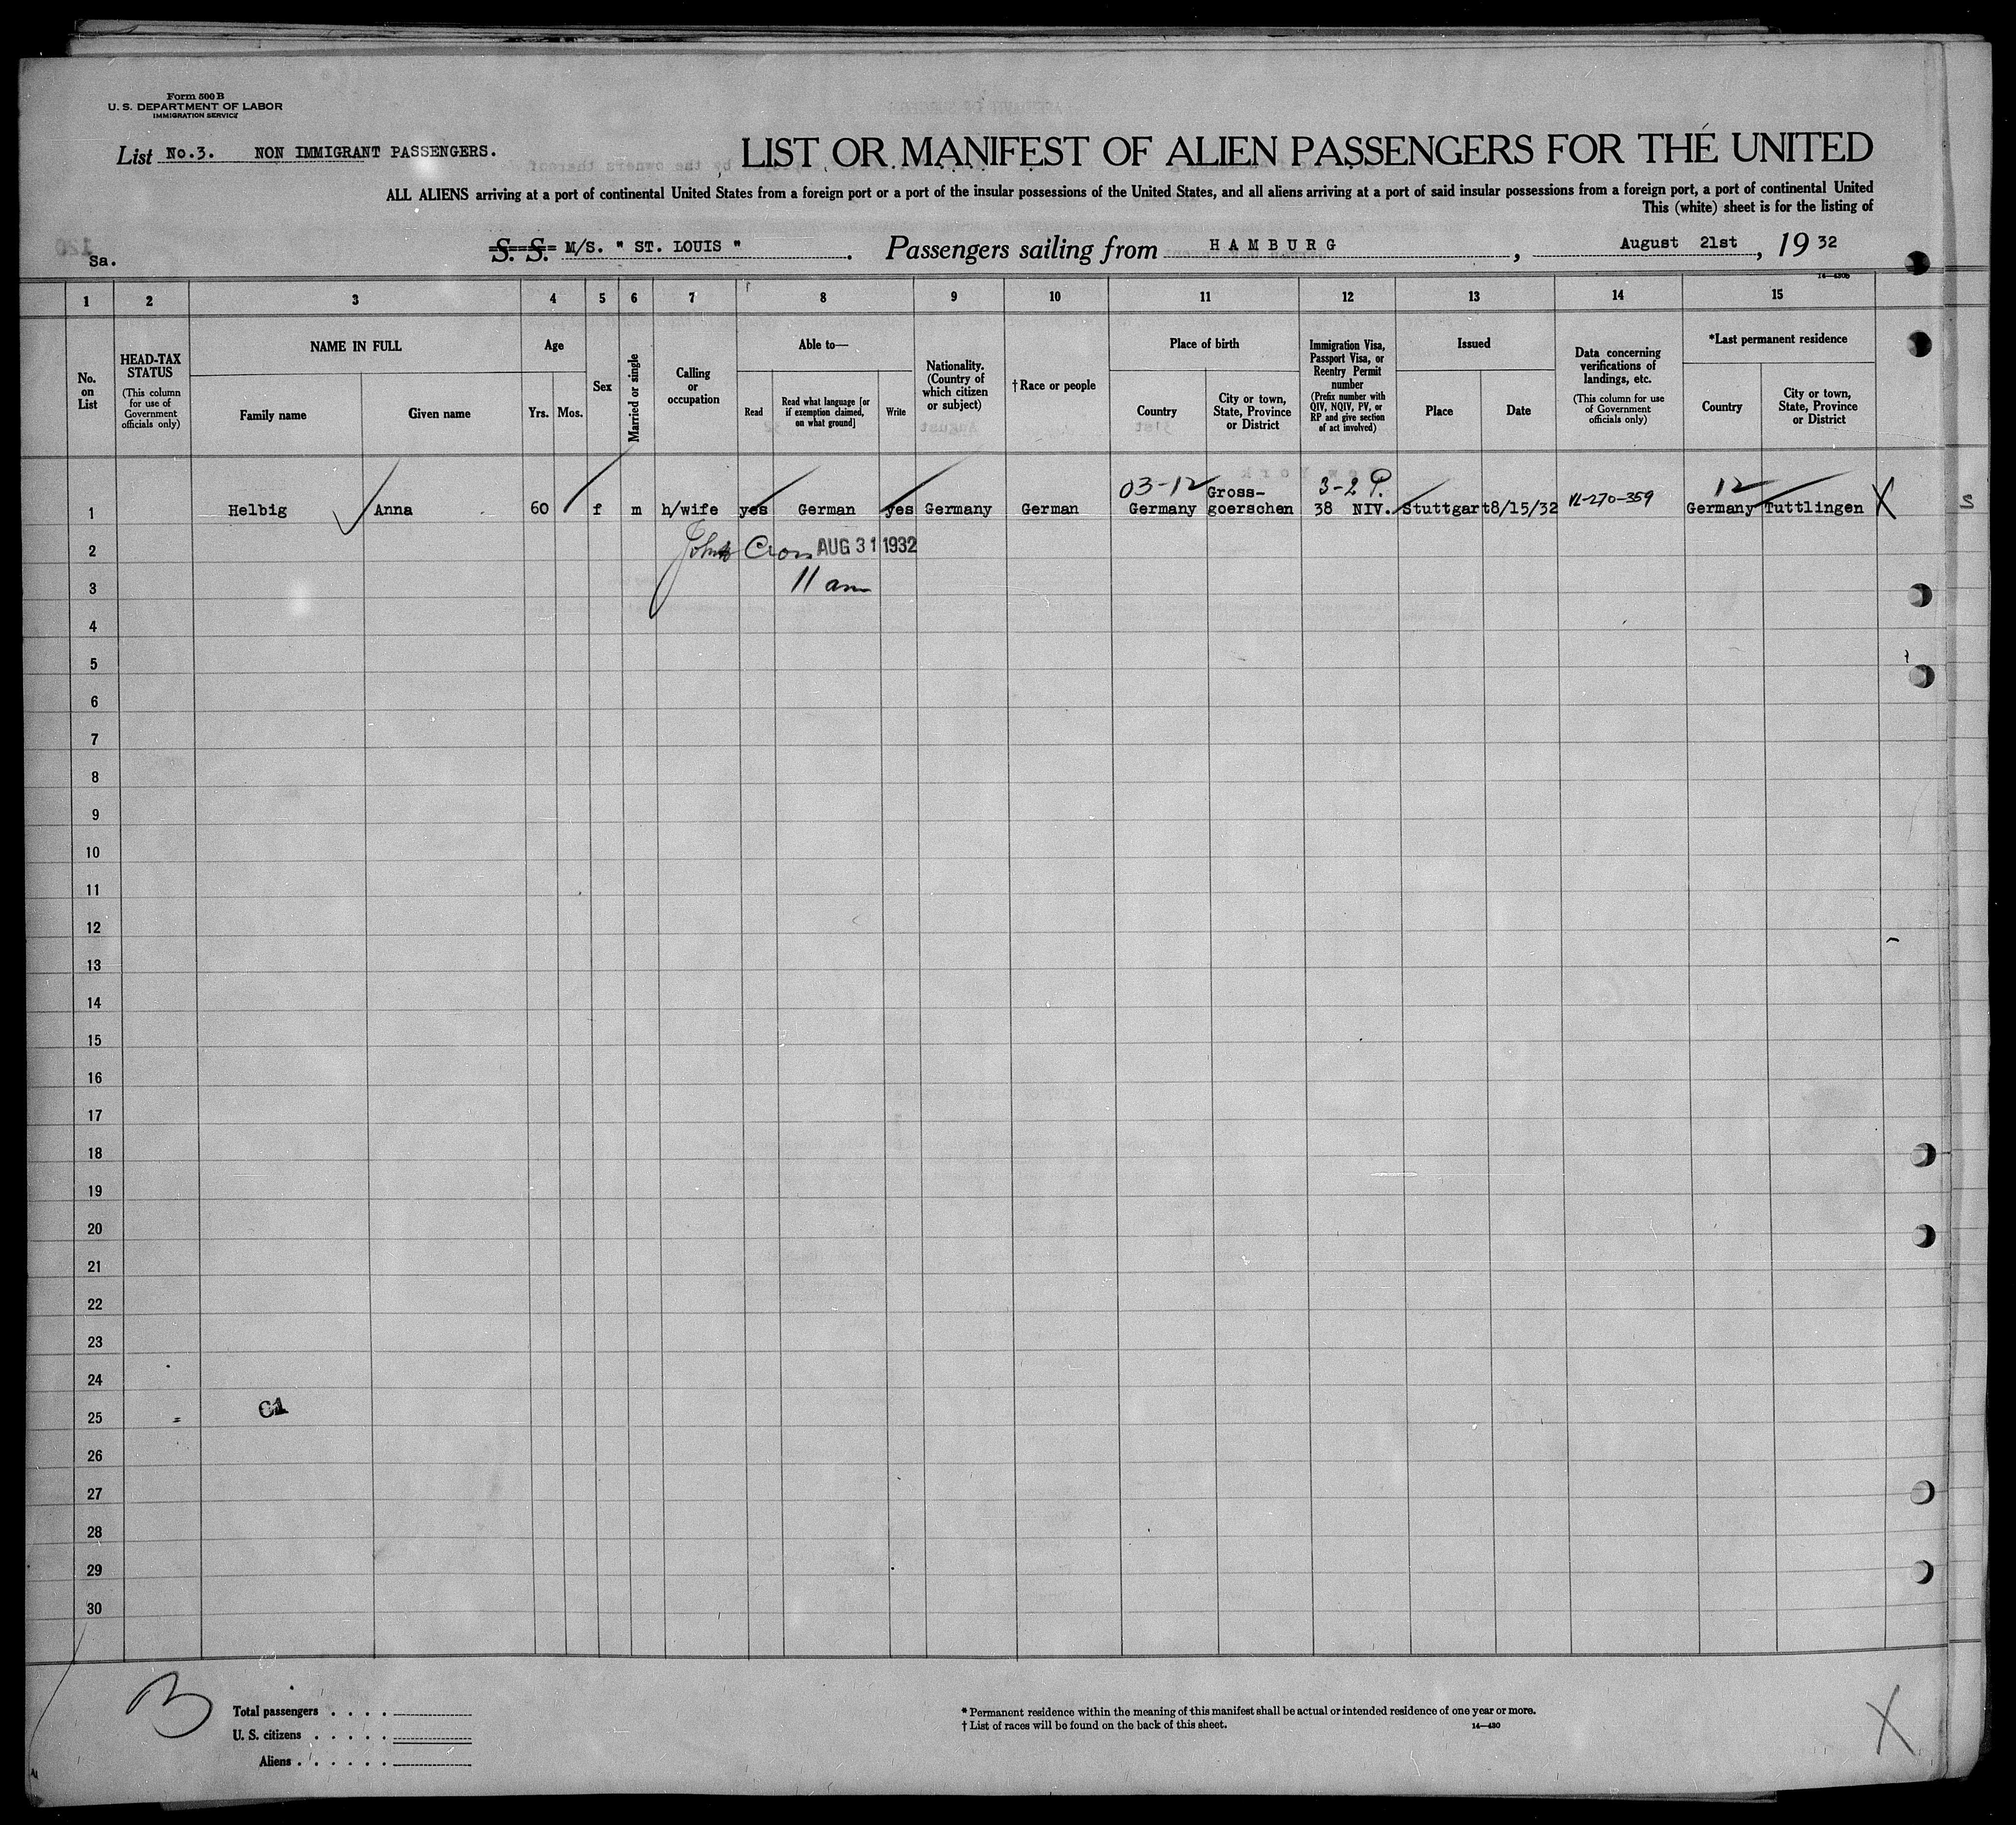 Form 500 B
U. S. DEPARTMENT OF LABOR
IMMIGRATION SERVICE
List No.3. NON IMMIGRANT PASSENGERS.
LIST OR MANIFEST OF ALIEN PASSENGERS FOR THE UNITED
ALL ALIENS arriving at a port of continental United States from a foreign port or a port of the insular possessions of the United States, and all aliens arriving at a port of said insular possessions from a foreign port, a port of continental United
This (white) sheet is for the listing of
Sa.
S. S. M/S. " ST. LOUIS ". Passengers sailing from HAMBURG, August 21st, 19 32
14—430b
1 2 3 4 5 6 7 8 9 10 11 12 13 14 15
No. on List
HEAD-TAX STATUS
(This column for use of Government officials only)
NAME IN FULL
Family name
Given name
Age
Yrs.
Mos.
Sex
Married or single
Calling or occupation
Able to—
Read
Read what language [or if exemption claimed, on what ground]
Write
Nationality. (Country of which citizen or subject)
†Race or people
Place of birth
Country
City or town, State, Province or District
Immigration Visa, Passport Visa, or Reentry Permit number
(Prefix number with QIV, NQIV, PV, or RP and give section of act involved)
Issued
Place
Date
Data concerning verifications of landings, etc.
(This column for use of Government officials only)
*Last permanent residence
Country
City or town, State, Province or District
03-12 Gross- 3-2 P. 12
1 Helbig Anna 60 f m h/wife yes German yes Germany German Germany goerschen 38 NIV. Stuttgart 8/15/32 VL-270-359 Germany Tuttlingen X S
2 AUG 31 1932
3 11 am
4
5
6
7
8
9
10
11
12
13
14
15
16
17
18
19
20
21
22
23
24
25
26
27
28
29
30
B
Total passengers . . . .
U. S. citizens . . . . .
Aliens . . . . . .
* Permanent residence within the meaning of this manifest shall be actual or intended residence of one year or more.
† List of races will be found on the back of this sheet.
14—430
X